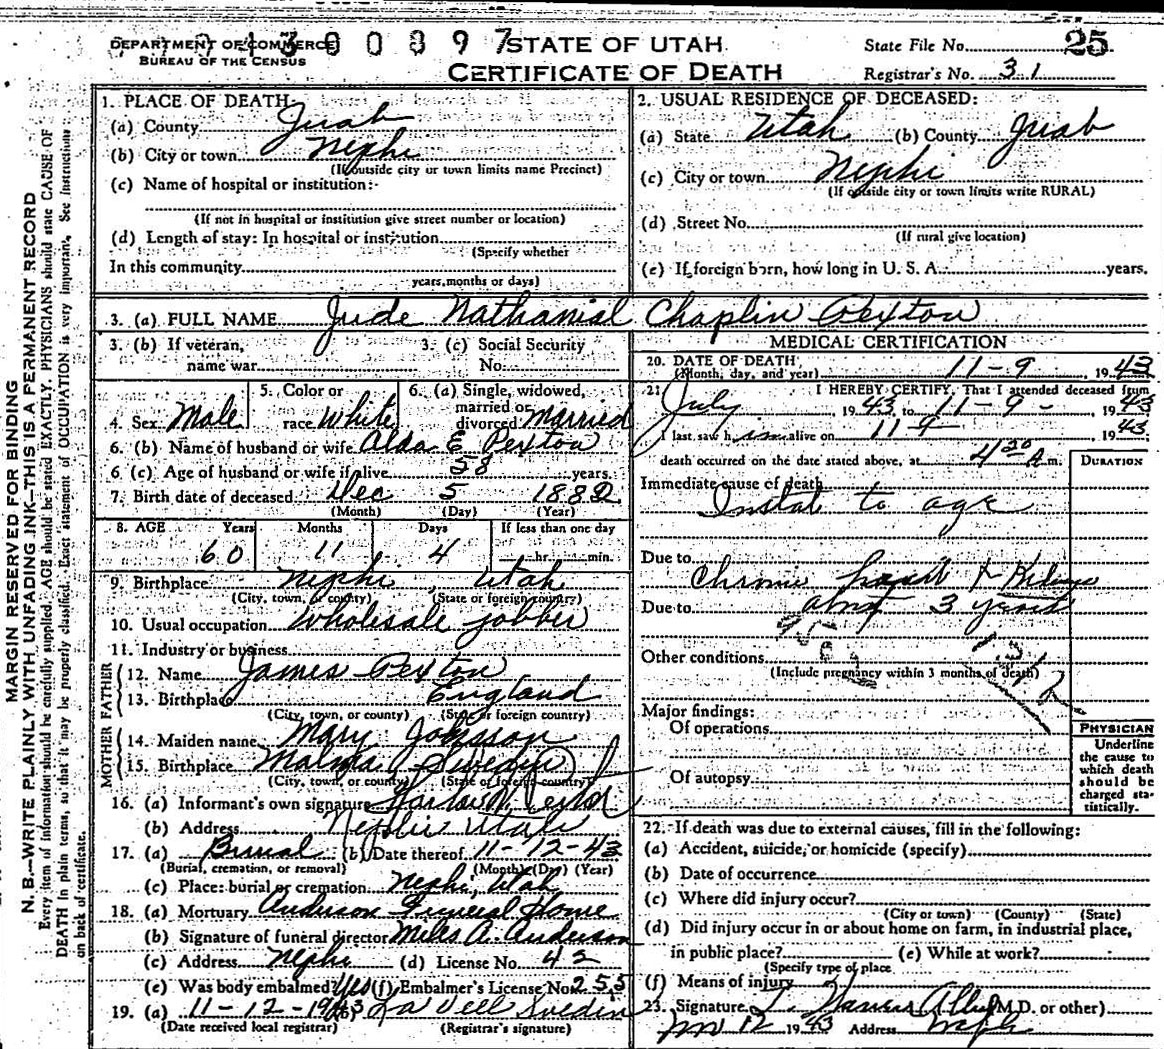 DEPARTMENT OF COMMERCE
BUREAU OF THE CENSUS
STATE OF UTAH
CERTIFICATE OF DEATH
State File No. 25
Registrar's No. 31
MARGIN RESERVED FOR BINDING
N. B.—WRITE PLAINLY WITH UNFADING INK—THIS IS A PERMANENT RECORD
Every item of information should be carefully supplied. AGE should be stated EXACTLY. PHYSICIANS should state CAUSE OF
DEATH in plain terms, so that it may be properly classified. Exact statement of OCCUPATION is very important. See instructions
on back of certificate.
1. PLACE OF DEATH
(a) County Juab
(b) City or town Nephi
(If outside city or town limits name Precinct)
(c) Name of hospital or institution:
(If not in hospital or institution give street number or location)
(d) Length of stay: In hospital or institution
(Specify whether
In this community
years, months or days)
2. USUAL RESIDENCE OF DECEASED:
(a) State Utah (b) County Juab
(c) City or town Nephi
(If outside city or town limits write RURAL)
(d) Street No.
(If rural give location)
(e) If foreign born, how long in U. S. A. years.
3. (a) FULL NAME Jude Nathanial Chaplin Pexton
3. (b) If veteran,
name war
3. (c) Social Security
No.
4. Sex Male
5. Color or
race White
6. (a) Single, widowed,
married or
divorced Married
6. (b) Name of husband or wife Alda E Pexton
6 (c) Age of husband or wife if alive 58 years.
7. Birth date of deceased Dec 5 1882
(Month) (Day) (Year)
8. AGE Years Months Days If less than one day
60 11 4 hr. min.
9. Birthplace Nephi Utah
(City, town, or county) (State or foreign country)
10. Usual occupation Wholesale jobber
11. Industry or business
FATHER
12. Name James Pexton
13. Birthplace England
(City, town, or county) (State or foreign country)
MOTHER
14. Maiden name Mary Johsson
15. Birthplace Malma Sweden
(City, town, or county) (State or foreign country)
16. (a) Informant's own signature Pexton
(b) Address Nephi Utah
17. (a) Burial (b) Date thereof 11-12-43
(Burial, cremation, or removal) (Month) (Day) (Year)
(c) Place: burial or cremation Nephi, Utah
18. (a) Mortuary Anderson Funeral Home
(b) Signature of funeral director Miles A. Anderson
(c) Address Nephi (d) License No. 42
(e) Was body embalmed? Yes (f) Embalmer's License No. 255
19. (a) 11-12-1943 La Vell Sveden
(Date received local registrar) (Registrar's signature)
MEDICAL CERTIFICATION
20. DATE OF DEATH 11-9, 1943
(Month, day, and year)
21. I HEREBY CERTIFY, That I attended deceased from
July 1943 to 11-9-, 1943
I last saw him alive on 11-9, 1943
death occurred on the date stated above, at 4 20 A. m.
DURATION
Immediate cause of death
to age
Due to
Chronic heart & Kidney
Due to about 3 years
95c
131.2
Other conditions
(Include pregnancy within 3 months of death)
Major findings:
Of operations
Of autopsy
PHYSICIAN
Underline
the cause to
which death
should be
charged sta-
tistically.
22. If death was due to external causes, fill in the following:
(a) Accident, suicide, or homicide (specify)
(b) Date of occurrence
(c) Where did injury occur?
(City or town) (County) (State)
(d) Did injury occur in or about home on farm, in industrial place,
in public place? (e) While at work?
(Specify type of place
(f) Means of injury
23. Signature (M.D. or other)
Nov 12 1943 Address Nephi